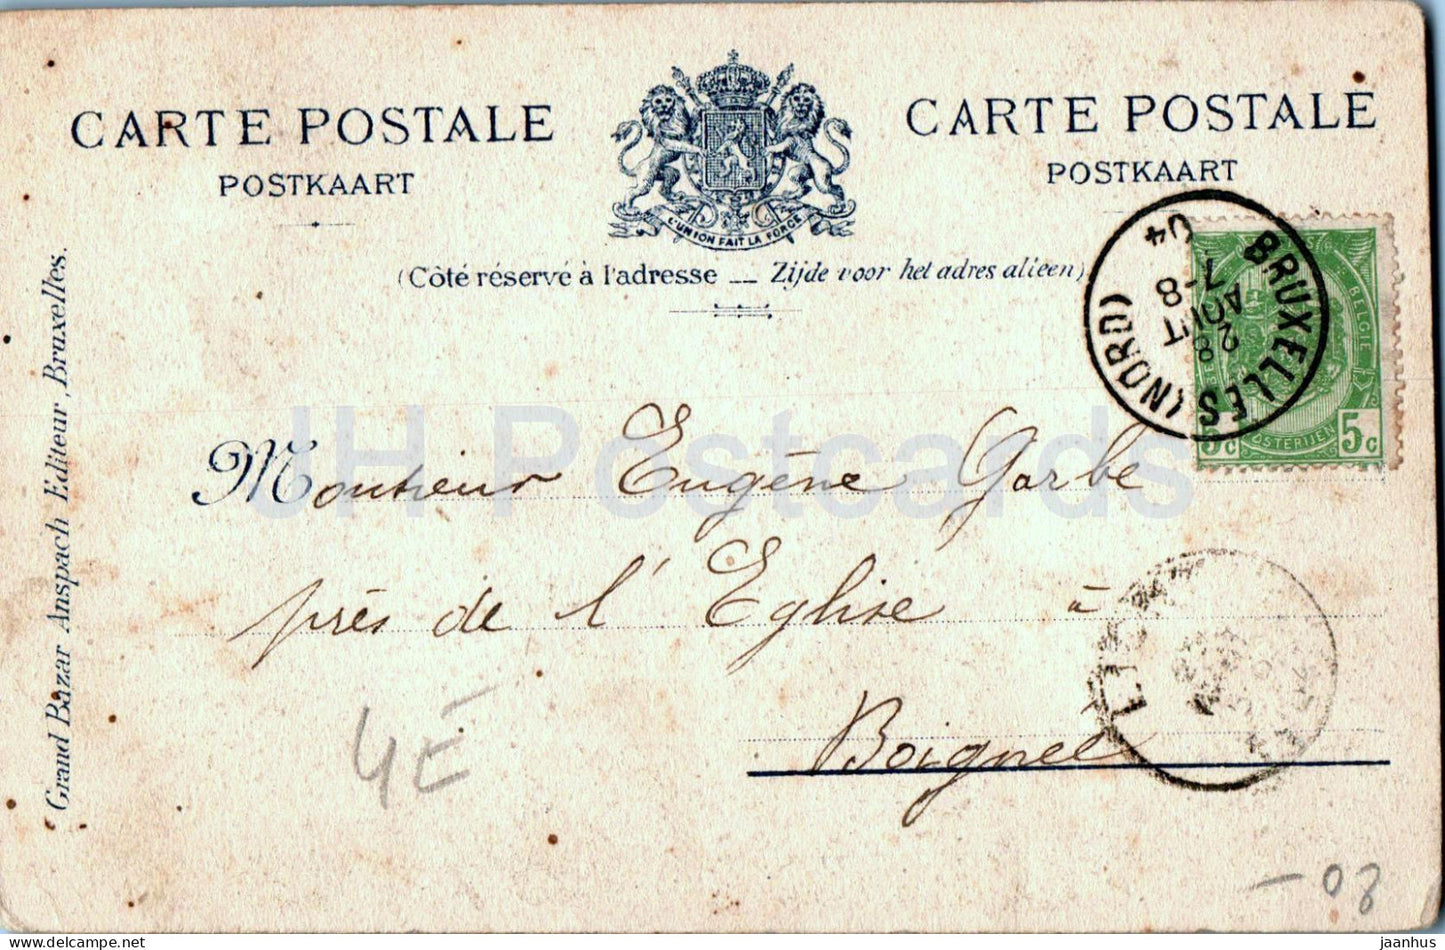 CARTE POSTALE
POSTKAART
L'UNION FAIT LA FORCE
CARTE POSTALE
POSTKAART
(Côté réservé à l'adresse — Zijde voor het adres alieen)
Grand Bazar Anspach Editeur, Bruxelles.
BRUXELLES (NORD)
28
AOUT
7-8
04
BELGIE
OSTERIJEN
5c 5c
Monsieur Eugène Garbe
près de l'Eglise à
Boignee
4E
-08
JH Postcards
delcampe.net
jaanhus